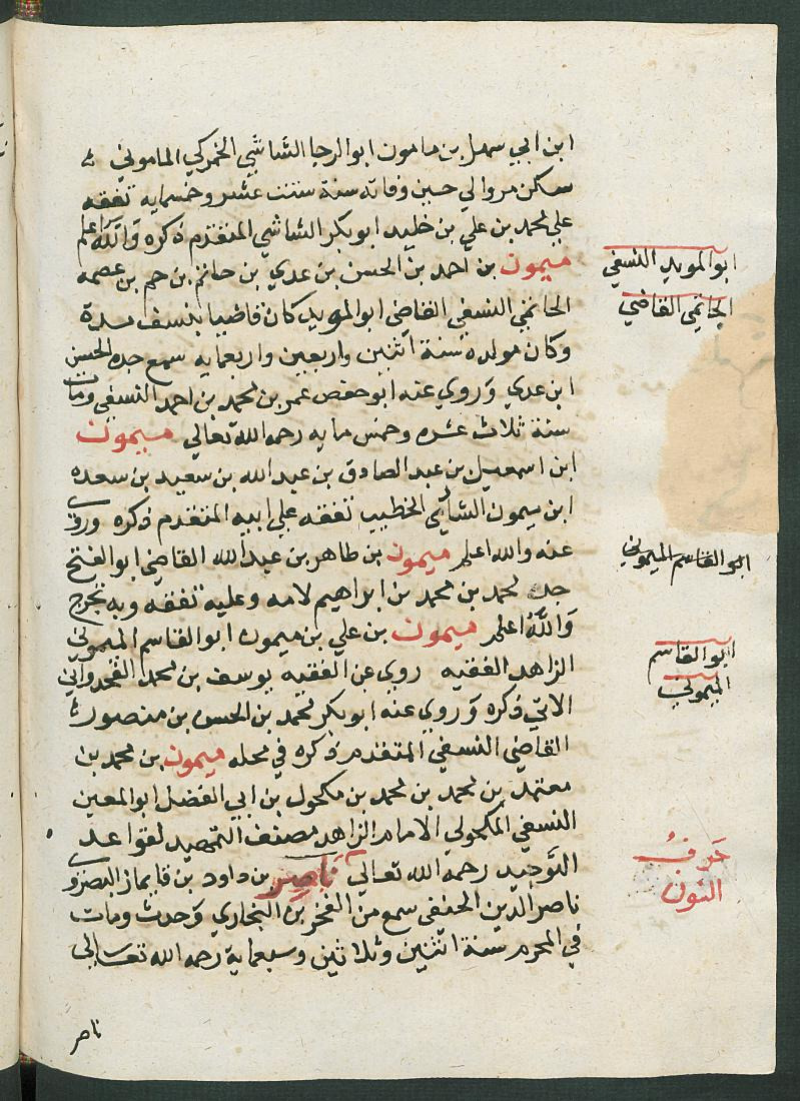 ابن ابي سهل بن مامون ابو الرجا الشاشي الخمركي الماموني
سكن مرو الي حين وفاته سنة ستت عشر وخمسمايه تفقه
علي محمد بن علي بن خليد ابو بكر الشاشي المتقدم ذكره والله اعلم
ميمون بن احمد بن الحسن بن عدي بن حاتم بن حم بن عصمه
ابو المويد النسفي
الحاتمي القاضي
الحاتمي النسفي القاضي ابو المويد كان قاضيا بنسف مدة
وكان مولده سنة اثنين واربعين واربعمايه سمع جده الحسن
ابن عدي وروي عنه ابو حفص عمر بن محمد بن احمد النسفي ومات
سنة ثلاث عشره وخمس مايه رحمه الله تعالي ميمون
ابن اسمعيل بن عبد الصادق بن عبد الله بن سعيد بن سعده
ابن ميمون الخطيب تفقه علي ابيه المتقدم ذكره وروي
عنه والله اعلم ميمون بن طاهر بن عبد الله القاضي ابو الفتح
ابو القاسم الميموني
جد محمد بن محمد بن ابراهيم لامه وعليه تفقه وبه تخرج
والله اعلم ميمون بن علي بن ميمون ابو القاسم الميموني
ابو القاسم
الميموني
الزاهد الفقيه روي عن الفقيه يوسف بن محمد
الاتي ذكره وروي عنه ابو بكر محمد بن الحسن بن منصور
القاضي النسفي المتقدم ذكره في محله ميمون بن محمد بن
معتمد بن محمد بن محمد بن مكحول بن ابي الفضل ابو المعين
النسفي المكحولي الامام الزاهد مصنف التمهيد لقواعد
التوحيد رحمه الله تعالي ناصر بن داود بن قايماز البصروي
حرف
النون
ناصر الدين الحنفي سمع من الفخر بن البخاري وحدث ومات
في المحرم سنة اثنين وثلاثين وسبعماية رحمه الله تعالي
ناصر